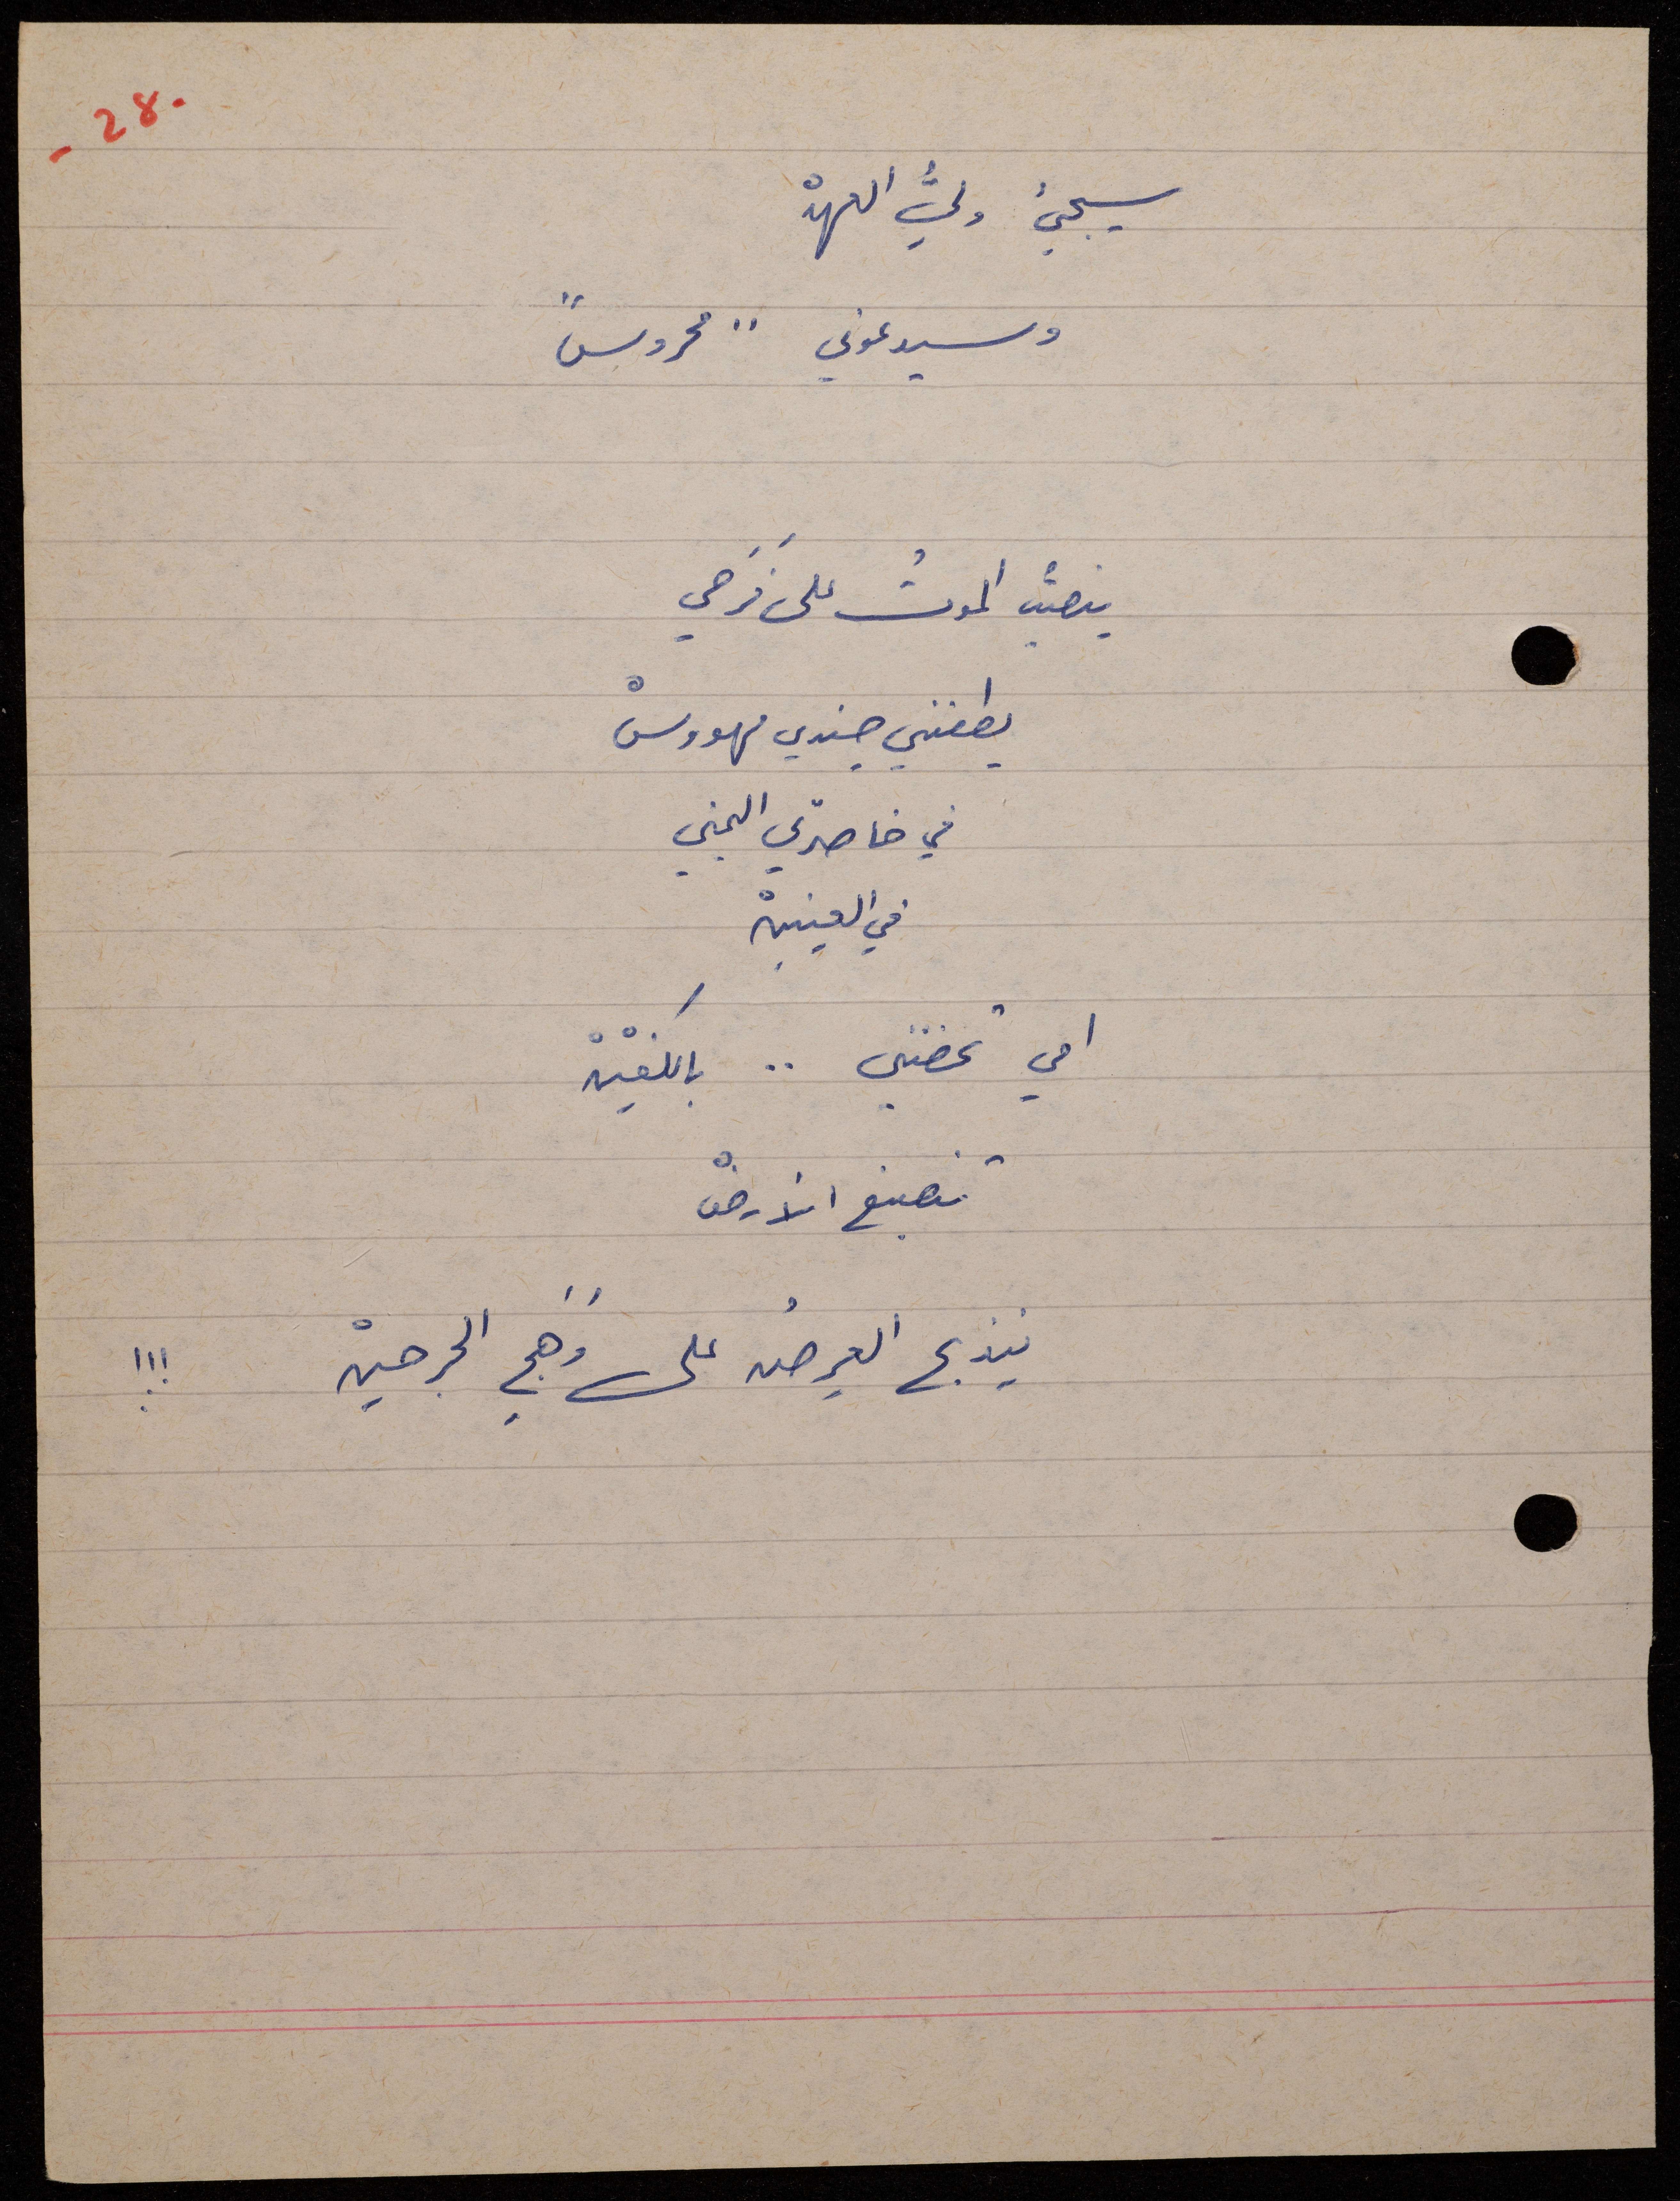 - 28 -
سيجيءُ وليُّ العهدْ
وسيدعوني "محروس"
ينصبّ الموتُ على فَرَحي
يطعنني جندي مهووسْ
في خاصرتي اليمنى
في العينينْ
امي تحضنني .. بالكفّينْ
تنصبغ الأرضْ
ينذبح العِرضُ على وَهَجِ الجرحينْ !!!